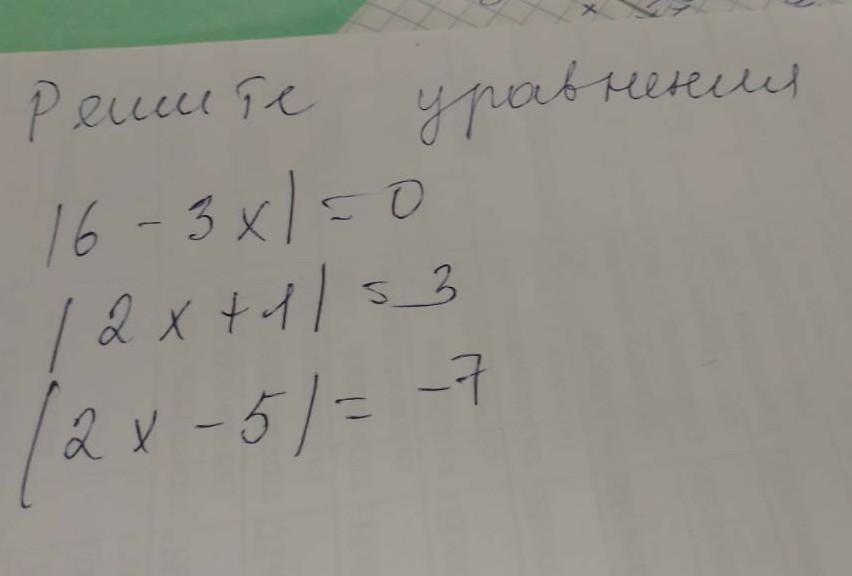 Решите уравнения
|6 - 3x| = 0
|2x + 1| = 3
|2x - 5| = -7